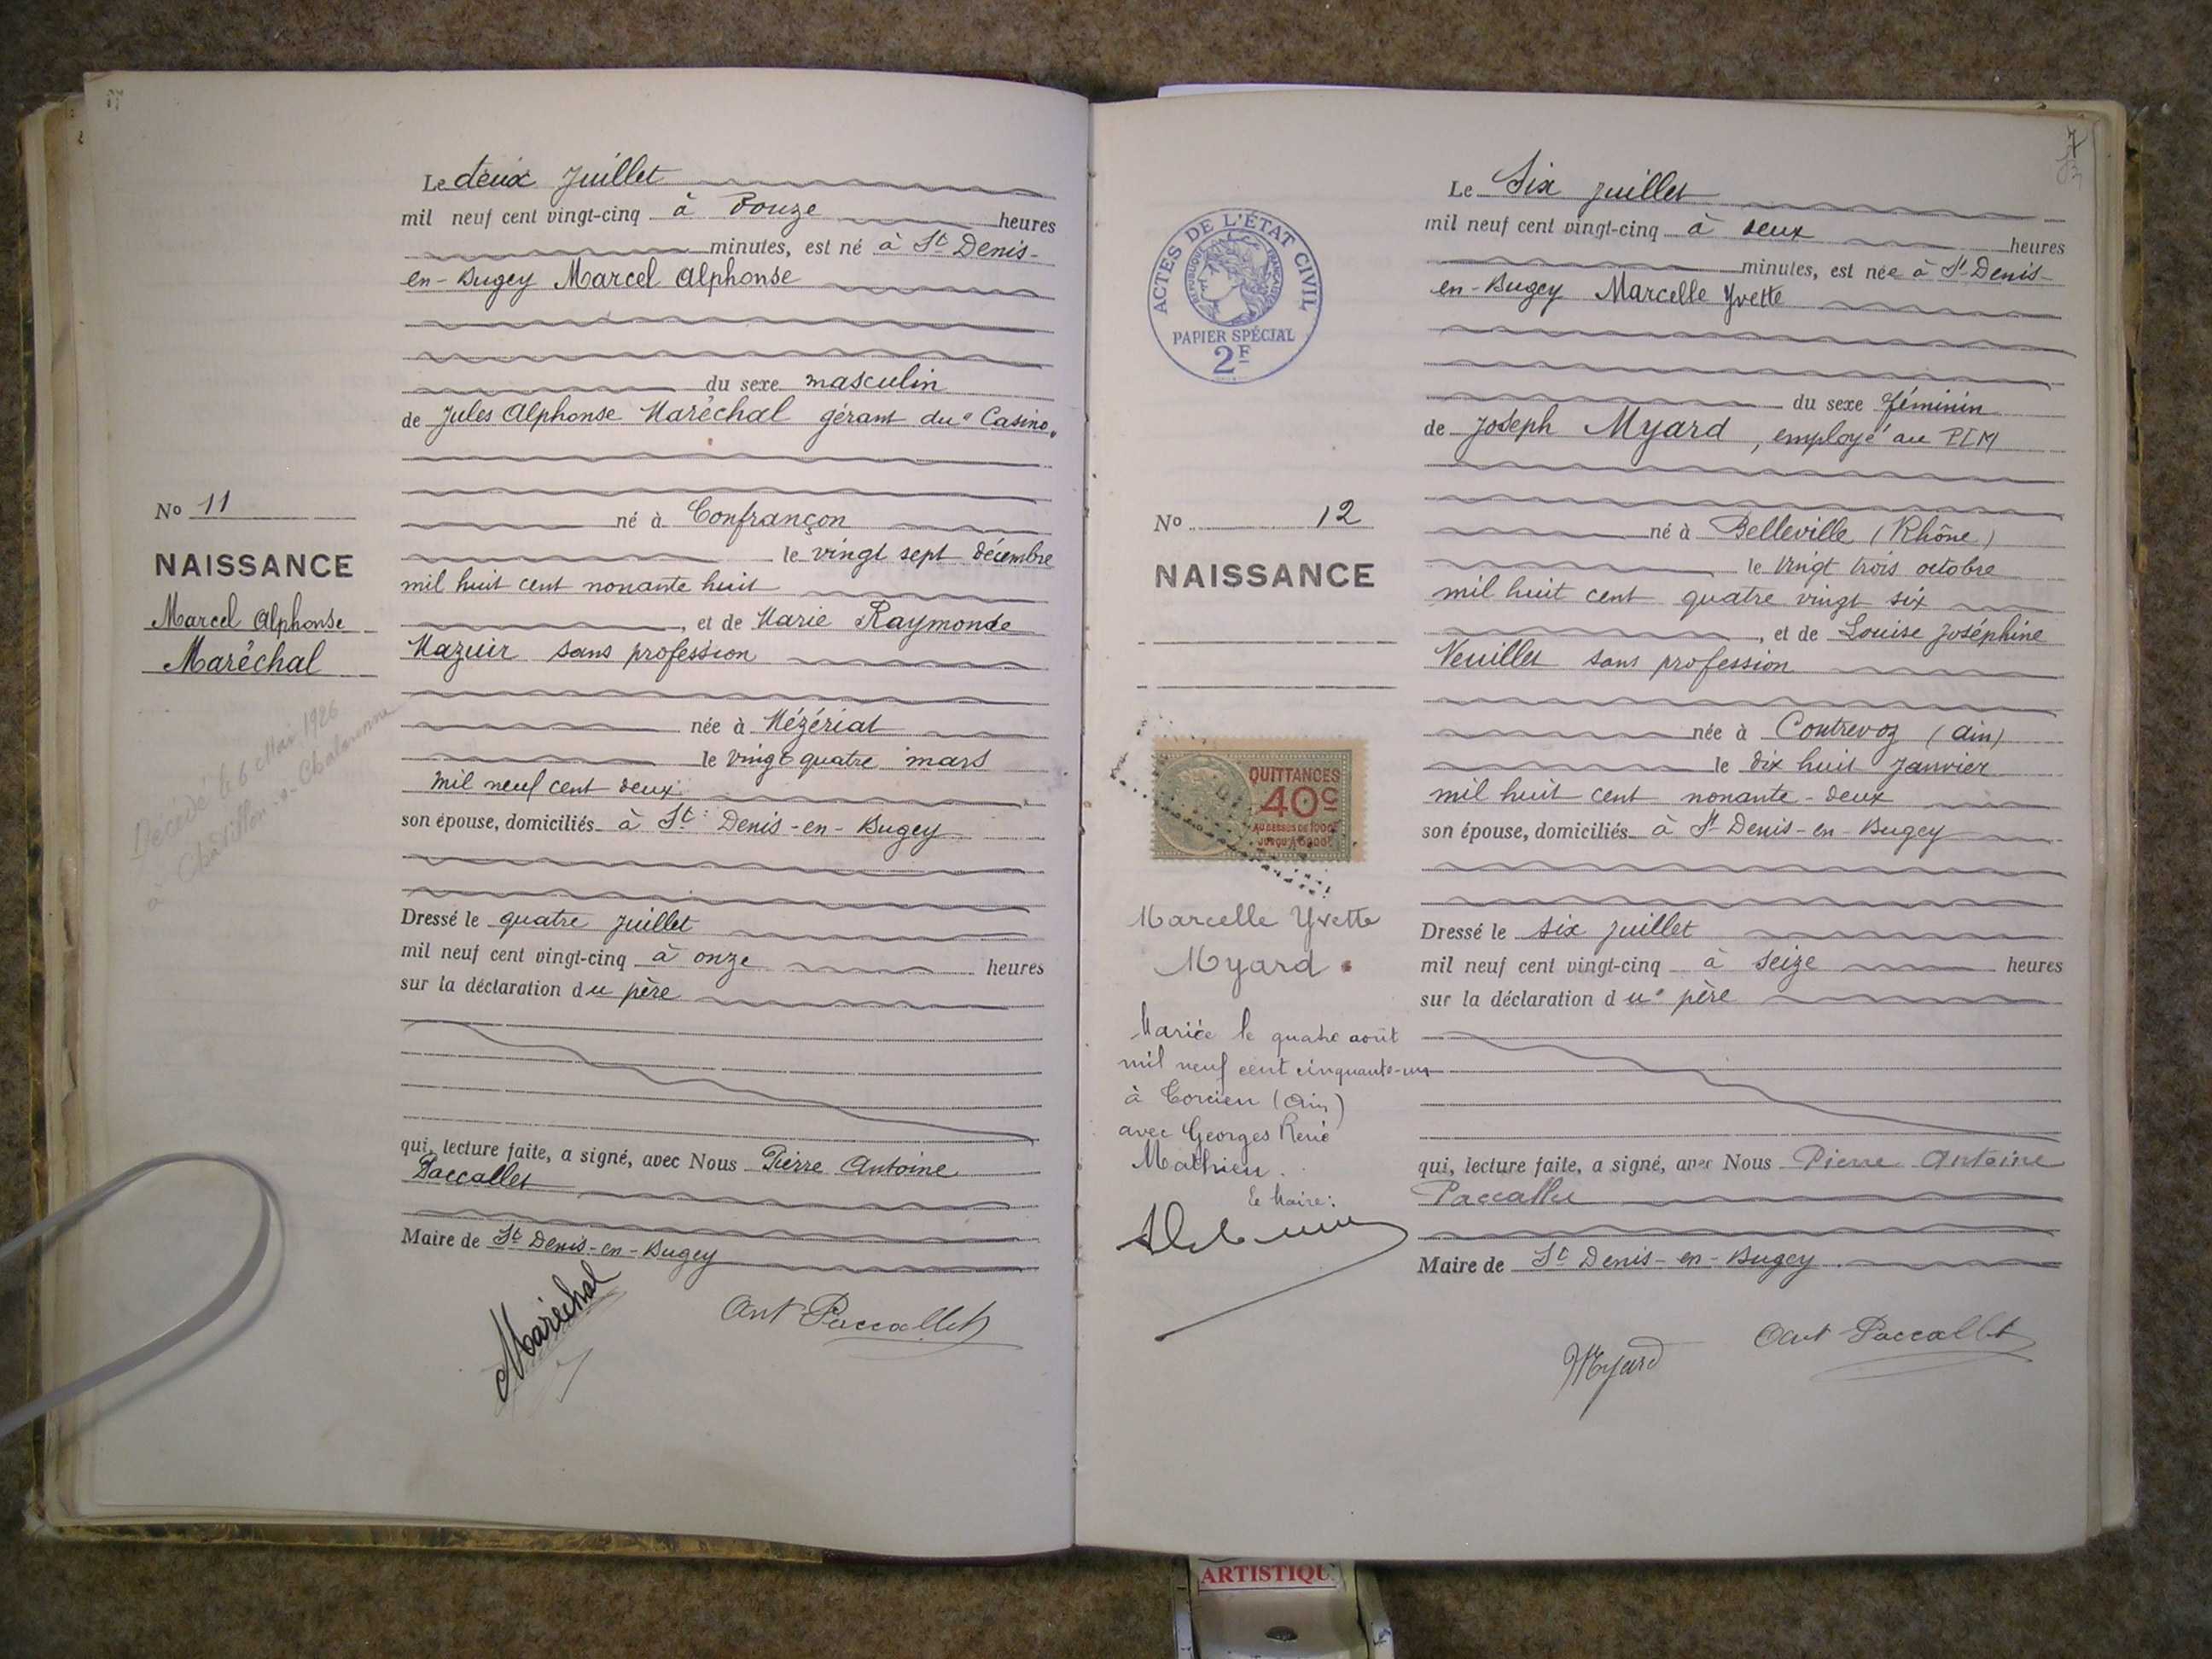 Le deux Juillet
mil neuf cent vingt-cinq à douze heures
minutes, est né à St Denis-
en-Bugey Marcel Alphonse
du sexe masculin
de Jules Alphonse Maréchal gérant du "Casino"
né à Confrançon
le vingt sept décembre
mil huit cent nonante huit
, et de Marie Raymonde
Mazuir sans profession
née à Mézériat
le vingt quatre mars
mil neuf cent deux
son épouse, domiciliés à St Denis-en-Bugey
Dressé le quatre Juillet
mil neuf cent vingt-cinq à onze heures
sur la déclaration du père
qui, lecture faite, a signé, avec Nous Pierre Antoine
Paccallet
Maire de St Denis-en-Bugey
Maréchal
Ant Paccallet
No 11
NAISSANCE
Marcel Alphonse
Maréchal
Décédé le 6 Mai 1926
à Châtillon-s-Chalaronne
7
ACTES DE L'ÉTAT CIVIL
RÉPUBLIQUE FRANÇAISE
PAPIER SPÉCIAL
2F
No 12
NAISSANCE
QUITTANCES
40c
AU DESSUS DE 1000F
Marcelle Yvette
Myard
Mariée le quatre août
mil neuf cent cinquante-un
à Torcieu (Ain)
avec Georges René
Mathieu.
Le Maire:
Le Six Juillet
mil neuf cent vingt-cinq à deux heures
minutes, est née à St Denis-
en-Bugey Marcelle Yvette
du sexe féminin
de Joseph Myard, employé au PLM
né à Belleville (Rhône)
le Vingt trois octobre
mil huit cent quatre vingt six
, et de Louise Joséphine
Veuillet sans profession
née à Contrevoz (Ain)
le dix huit Janvier
mil huit cent nonante-deux
son épouse, domiciliés à St Denis-en-Bugey
Dressé le six Juillet
mil neuf cent vingt-cinq à seize heures
sur la déclaration du père
qui, lecture faite, a signé, avec Nous Pierre Antoine
Paccallet
Maire de St Denis-en-Bugey
Myard
Ant Paccallet
ARTISTIQU